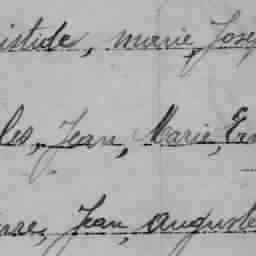 istide, marie, Jose
les, Jean, Marie, Ern
rre, Jean, auguste